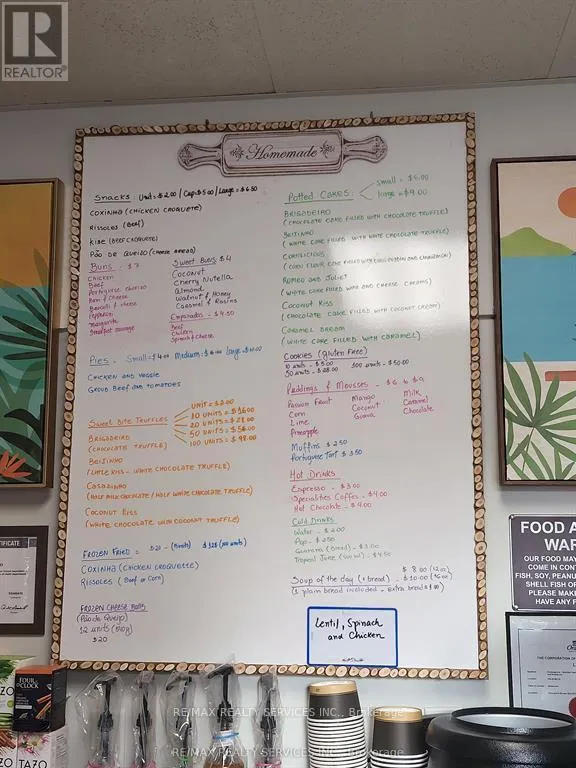 REALTOR®
Homemade
Snacks: Unit=$2.00 / Cup=$5.00 / Large=$6.50
COXINHA (CHICKEN CROQUETE)
RISSOLES (Beef)
KIBE (BEEF CROQUETE)
PÃO DE QUEIJO (CHEESE BREAD)
Buns - $7
Chicken
Beef
Portuguese chorizo
Ham & cheese
Margarita
Breakfast sausage
Sweet Buns $4
Coconut
Cherry Nutella
Almond
Walnut & Honey
Caramel & Raisins
Empanadas - $4.50
Beef
Chicken
Spinach & cheese
Pies - Small=$4.00 Medium=$ Large $10.00
CHICKEN AND VEGGIE
GROUD BEEF AND TOMATOES
Sweet Bite Truffles
UNIT = $2.00
10 UNITS = $16.00
20 UNITS = $28.00
50 UNITS = $56.00
100 UNITS = $98.00
BRIGADEIRO
(CHOCOLATE TRUFFLE)
BEIJINHO
(LITTLE KISS - WHITE CHOCOLATE TRUFFLE)
CASADINHO
(HALF MILK CHOCOLATE / HALF WHITE CHOCOLATE TRUFFLE)
COCONUT KISS
(WHITE CHOCOLATE WITH COCONUT TRUFFLE)
FROZEN FRIED =
COXINHA (CHICKEN CROQUETTE)
RISSOLES (Beef or Corn)
FROZEN CHEESE BALLS
(Pão de Queijo)
12 units
$20
Potted Cakes:
small = $6.00
large = $9.00
BRIGADEIRO
(CHOCOLATE CAKE FILLED WITH CHOCOLATE TRUFFLE)
BEIJINHO
(WHITE CAKE FILLED WITH WHITE CHOCOLATE TRUFFLE)
CORNLICIOUS
(CORN FLOUR CAKE FILLED WITH CORN PUDDIN AND CINNAMON)
ROMEO AND JULIET
(WHITE CAKE FILLED WITH AND CHEESE CREAMS)
COCONUT KISS
(CHOCOLATE CAKE FILLED WITH COCONUT CREAM)
CARAMEL DREAM
(WHITE CAKE FILLED WITH CARAMEL)
Cookies (Gluten Free)
10 units - $5.00 100 units - $50.00
50 units - $28.00
Puddings & Mousses - $6 to $9
Passion Fruit Mango Milk
Corn Coconut Caramel
Lime Guava Chocolate
Pineapple
Muffins $2.50
Portuguese Tart $3.50
Hot Drinks
Espresso - $3.00
Specialities Coffes - $4.00
Hot Chocolate - $4.00
Cold Drinks
Water - $2.00
Pop - $2.50
Guarana (Brazil) - $3.00
Tropical Juice - $4.50
Soup of the day (+ bread) - $8.00 (12oz)
$10.00 (16oz)
(1 plain bread included - extra bread $1.00)
Lentil, Spinach
and Chicken
FOOD A
WAR
OUR FOOD MAY
COME IN CONT
FISH, SOY, PEANU
SHELL FISH OR
PLEASE MAKE
HAVE ANY F
THE CORPORATION OF
CERTIFICATE
FOUR
O'CLOCK
AZO
ZO
TAZO
RE/MAX REALTY SERVICES INC., Brokerage
RE/MAX REALTY SERVICES INC., Brokerage